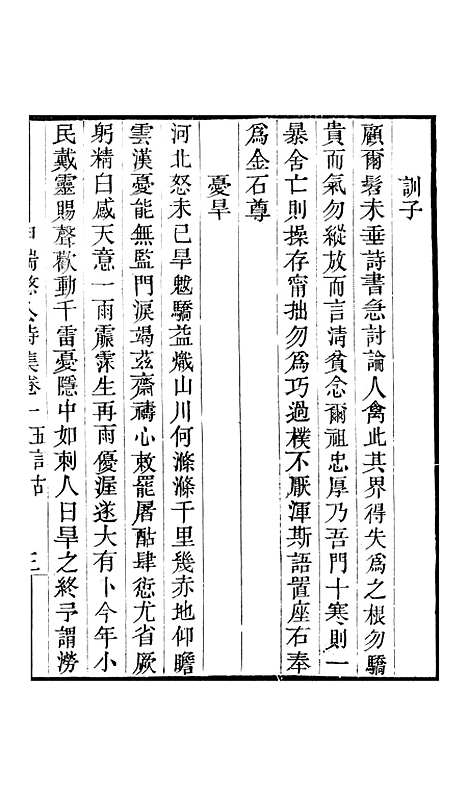 訓子
顧爾髫未垂詩書急討論人禽此其界得失爲之根勿驕
貴而氣勿縱放而言清貧念爾祖忠厚乃吾門十寒則一
暴舍亡則操存甯拙勿爲巧過樸不厭渾斯語置座右奉
爲金石尊
憂旱
河北怒未已旱魃驕益熾山川何滌滌千里幾赤地仰瞻
雲漢憂能無監門淚竭玆齋禱心敕罷屠酤肆愆尤省厥
躬精白感天意一雨霢霂生再雨優渥遂大有卜今年小
民戴靈賜聲歡動千雷憂隱中如刺人日旱之終予謂澇
端㦤人詩集卷一五言古 三